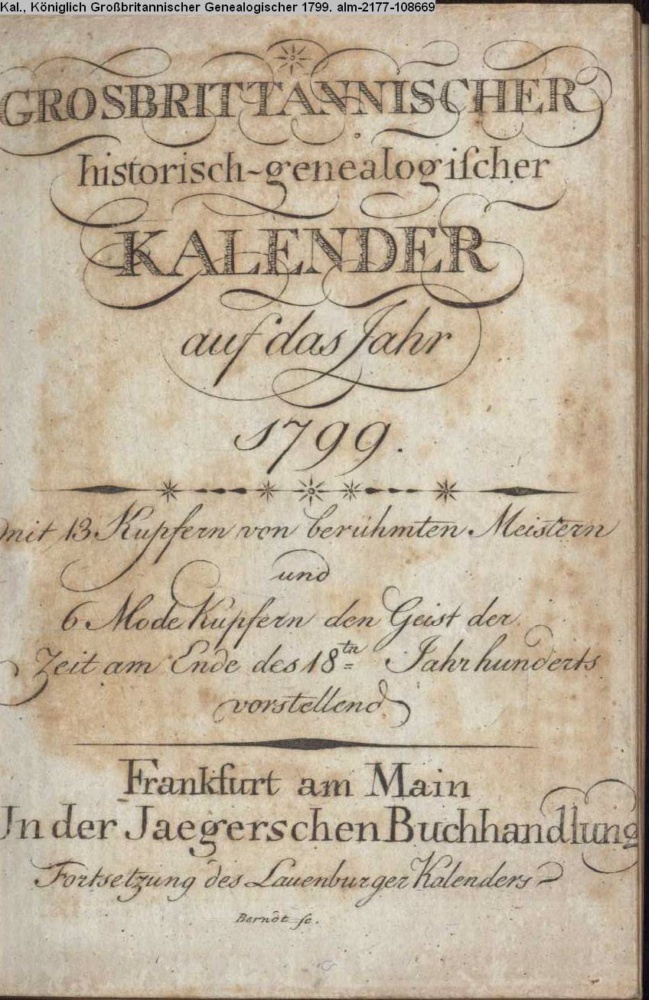 Kal., Königlich Großbritannischer Genealogischer 1799. alm-2177-108669
GROSBRITTANNISCHER
historisch-genealogiſcher
KALENDER
auf das Jahr
1799.
mit 13 Kupfern von berühmten Meistern
und
6 Mode Kupfern den Geist der
Zeit am Ende des 18tn Jahrhunderts
vorstellend
Frankfurt am Main
In der Jaegerschen Buchhandlung
Fortsetzung des Lauenburger Kalenders
Berndt sc.